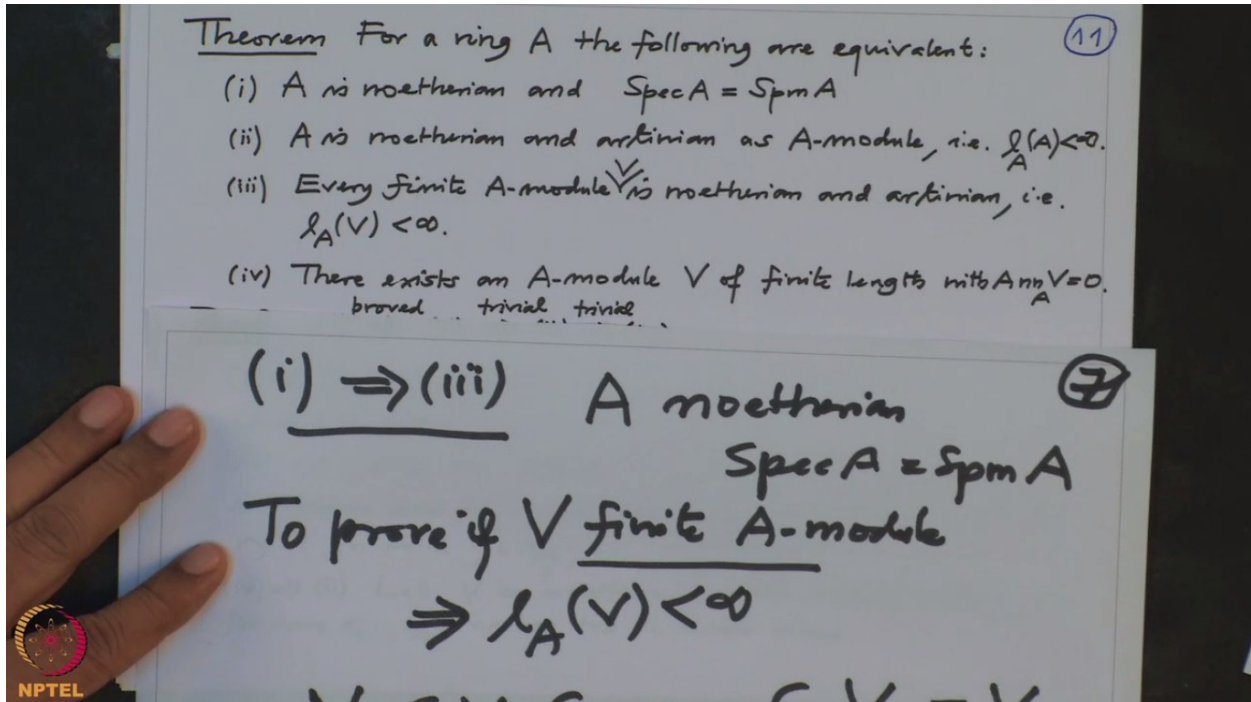 Theorem For a ring A the following are equivalent: 11
(i) A is noetherian and Spec A = Spm A
(ii) A is noetherian and artinian as A-module, i.e. l_A(A)<∞.
(iii) Every finite A-module V is noetherian and artinian, i.e.
l_A(V) <∞.
(iv) There exists an A-module V of finite length with Ann_A V=0.
proved trivial trivial
(i) ⇒ (iii) A noetherian 7
Spec A = Spm A
To prove if V finite A-module
⇒ l_A(V) <∞
NPTEL